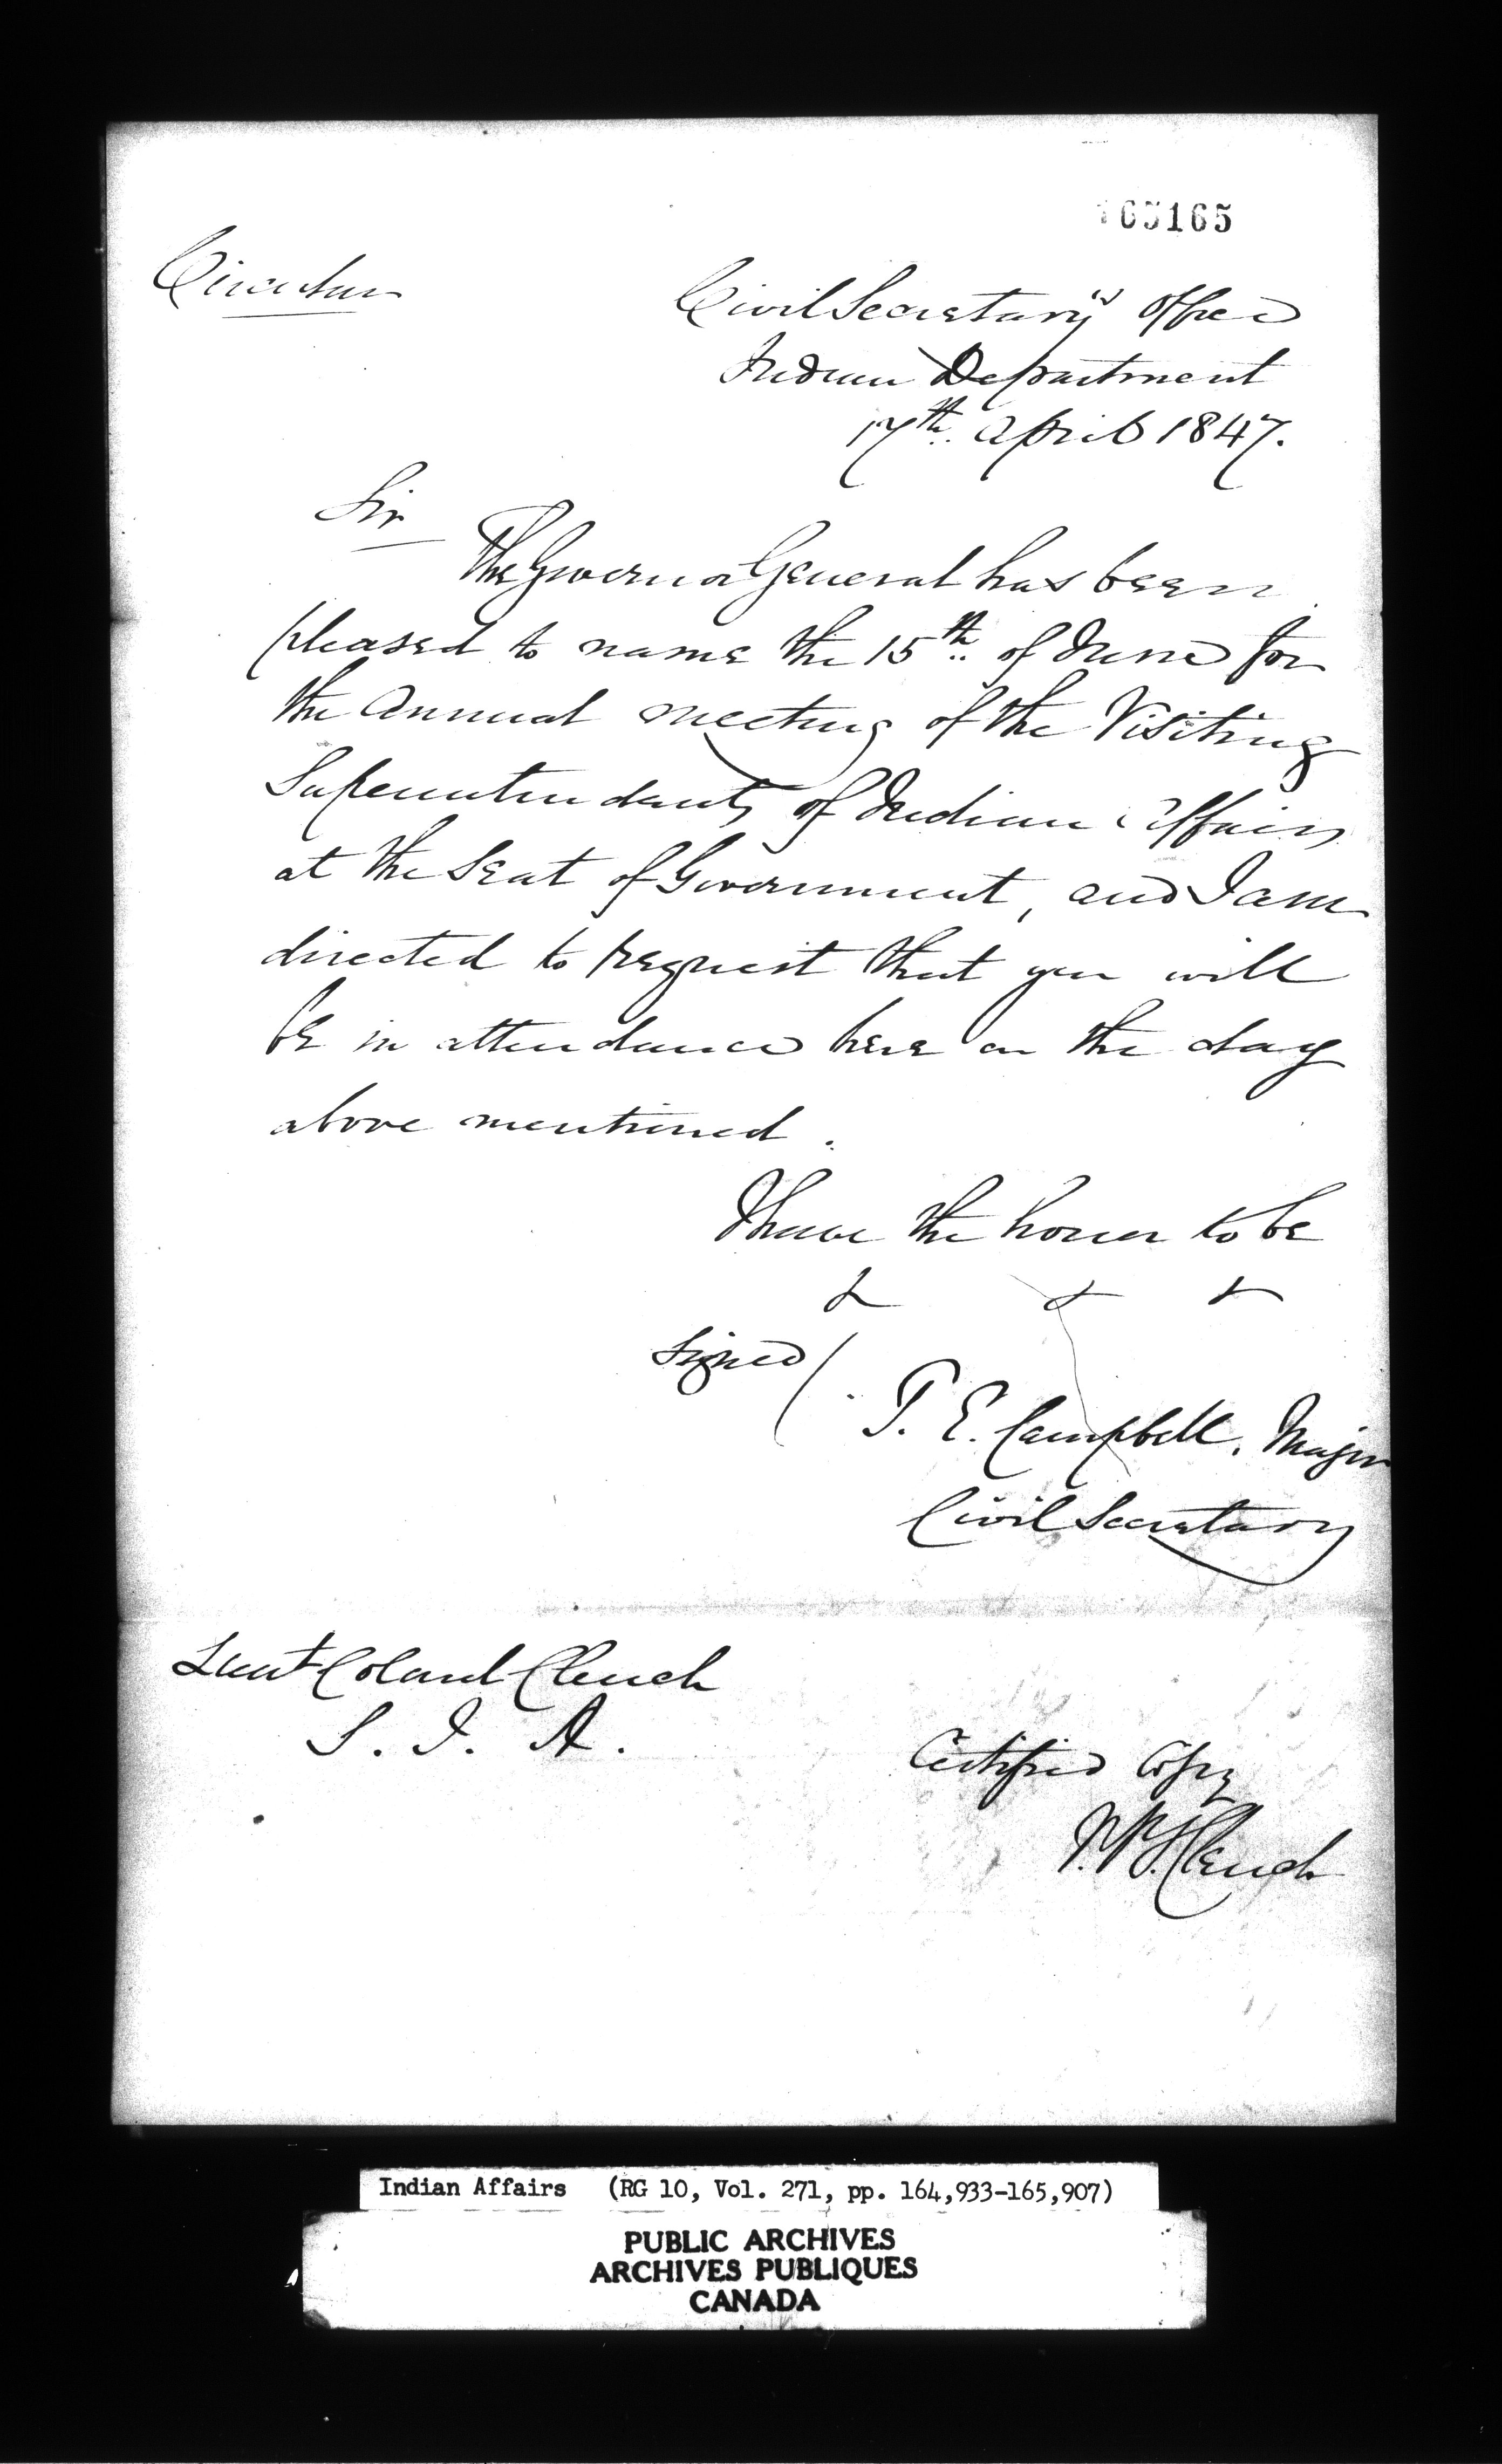 165165
Circular
Civil Secretary's Office
Indian Department
17th April 1847.
Sir
The Governor General has been
pleased to name the 15th of June for
the Annual meeting of the Visiting
Superintendants of Indian Affairs
at the Seat of Government, and I am
directed to request that you will
be in attendance here on the day
above mentioned.
I have the honor to be
& & &
Signed /
T. E. Campbell, Major
Civil Secretary
Lieut Colonel Clench
S. I. A.
Certified Copy
Clench
Indian Affairs (RG 10, Vol. 271, pp. 164,933-165,907)
PUBLIC ARCHIVES
ARCHIVES PUBLIQUES
CANADA